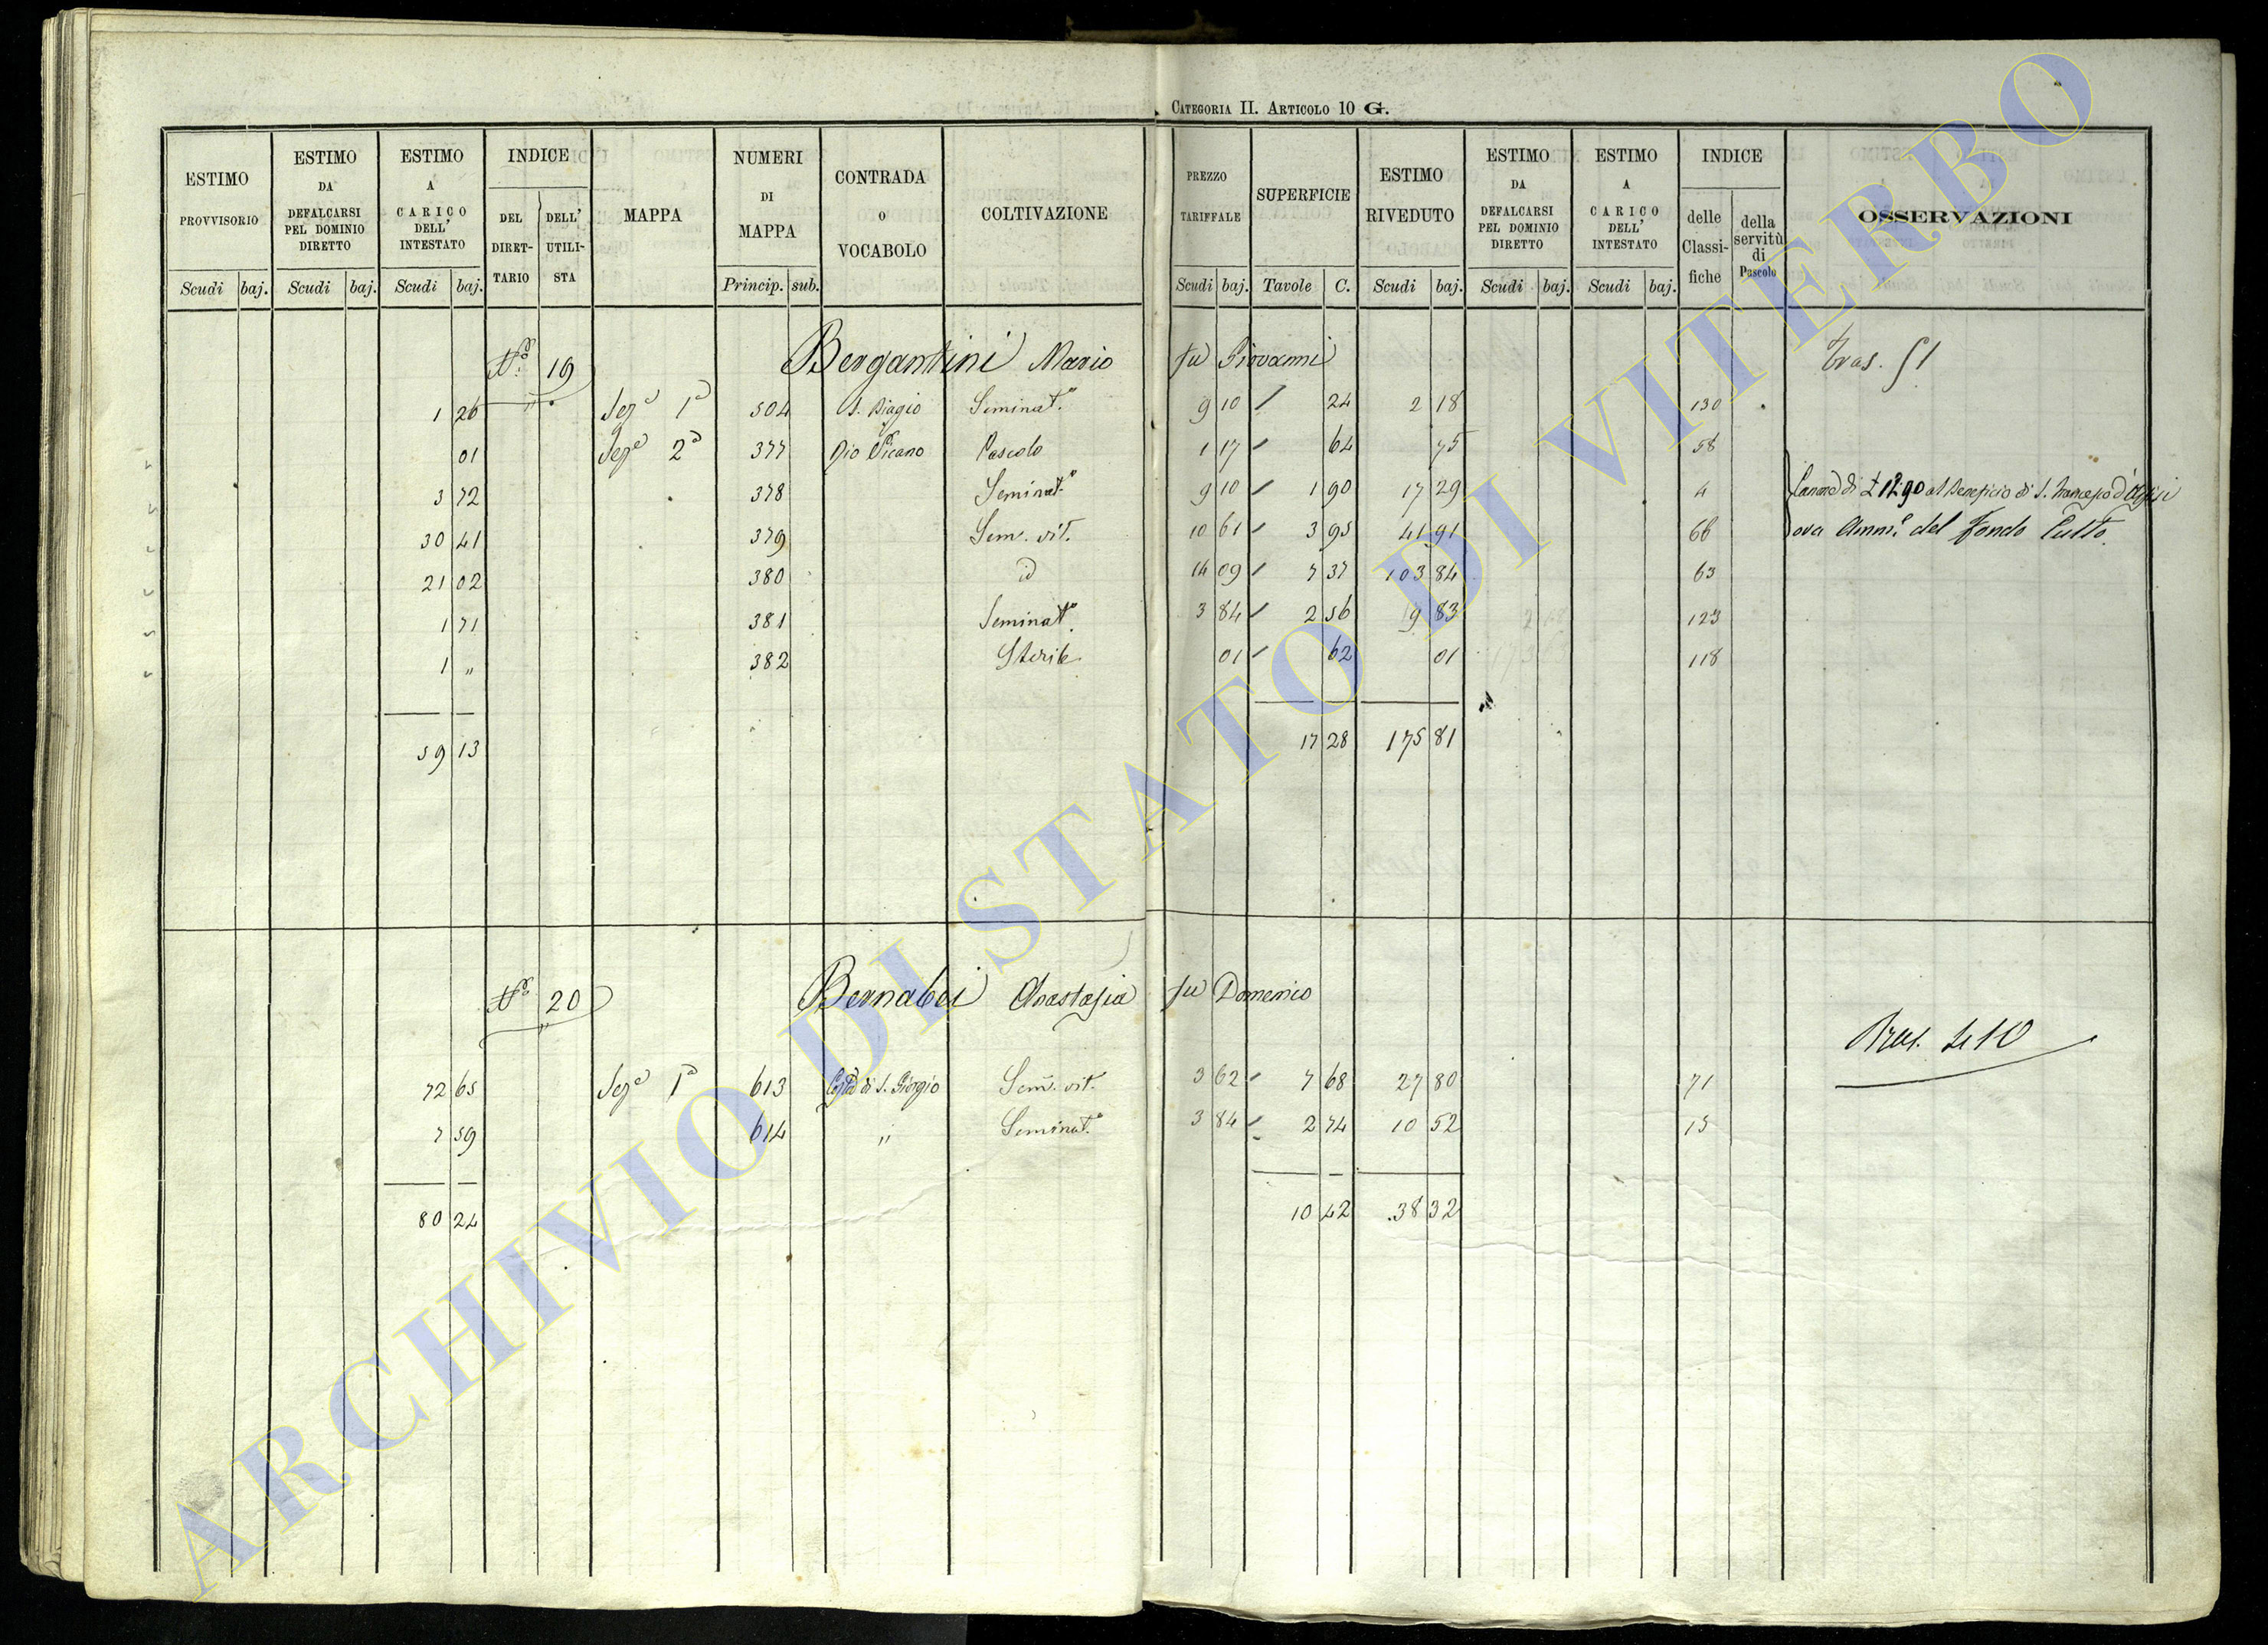 CATEGORIA II. ARTICOLO 10 G.
ESTIMO PROVVISORIO Scudi baj.
ESTIMO DA DEFALCARSI PEL DOMINIO DIRETTO Scudi baj.
ESTIMO A CARICO DELL' INTESTATO Scudi baj.
INDICE DEL DIRETTARIO DELL' UTILISTA
MAPPA
NUMERI DI MAPPA Princip. sub.
CONTRADA O VOCABOLO
COLTIVAZIONE
PREZZO TARIFFALE Scudi baj.
SUPERFICIE Tavole C.
ESTIMO RIVEDUTO Scudi baj.
ESTIMO DA DEFALCARSI PEL DOMINIO DIRETTO Scudi baj.
ESTIMO A CARICO DELL' INTESTATO Scudi baj.
INDICE delle Classifiche della servitù di Pascolo
OSSERVAZIONI
N.o 19 Bergantini Mario fu Giovanni Tras. 51
1 26 Seza 1a 504 S. Biagio Seminat.o 9 10 24 2 18 130
01 Seza 2a 377 Rio Vicano Pascolo 1 17 64 75 58
3 72 378 Seminat.o 9 10 1 90 17 29 4 Canone di £ 12.90 al Beneficio di S. Francesco d'Assisi
30 41 379 Sem. vit. 10 61 3 95 41 91 66 ora Amm.e del Fondo Culto.
21 02 380 id 14 09 7 37 103 84 63
1 71 381 Seminat.o 3 84 2 56 9 83 123
1 " 382 Sterile 01 62 01 118
59 13 17 28 175 81
N.o 20 Bernabei Anastasia fu Domenico
Tras. 410
72 65 Seza 1a 613 Costa di S. Giorgio Sem. vit. 3 62 7 68 27 80 71
7 59 614 " Seminat.o 3 84 2 74 10 52 15
80 24 10 42 38 32
ARCHIVIO DI STATO DI VITERBO